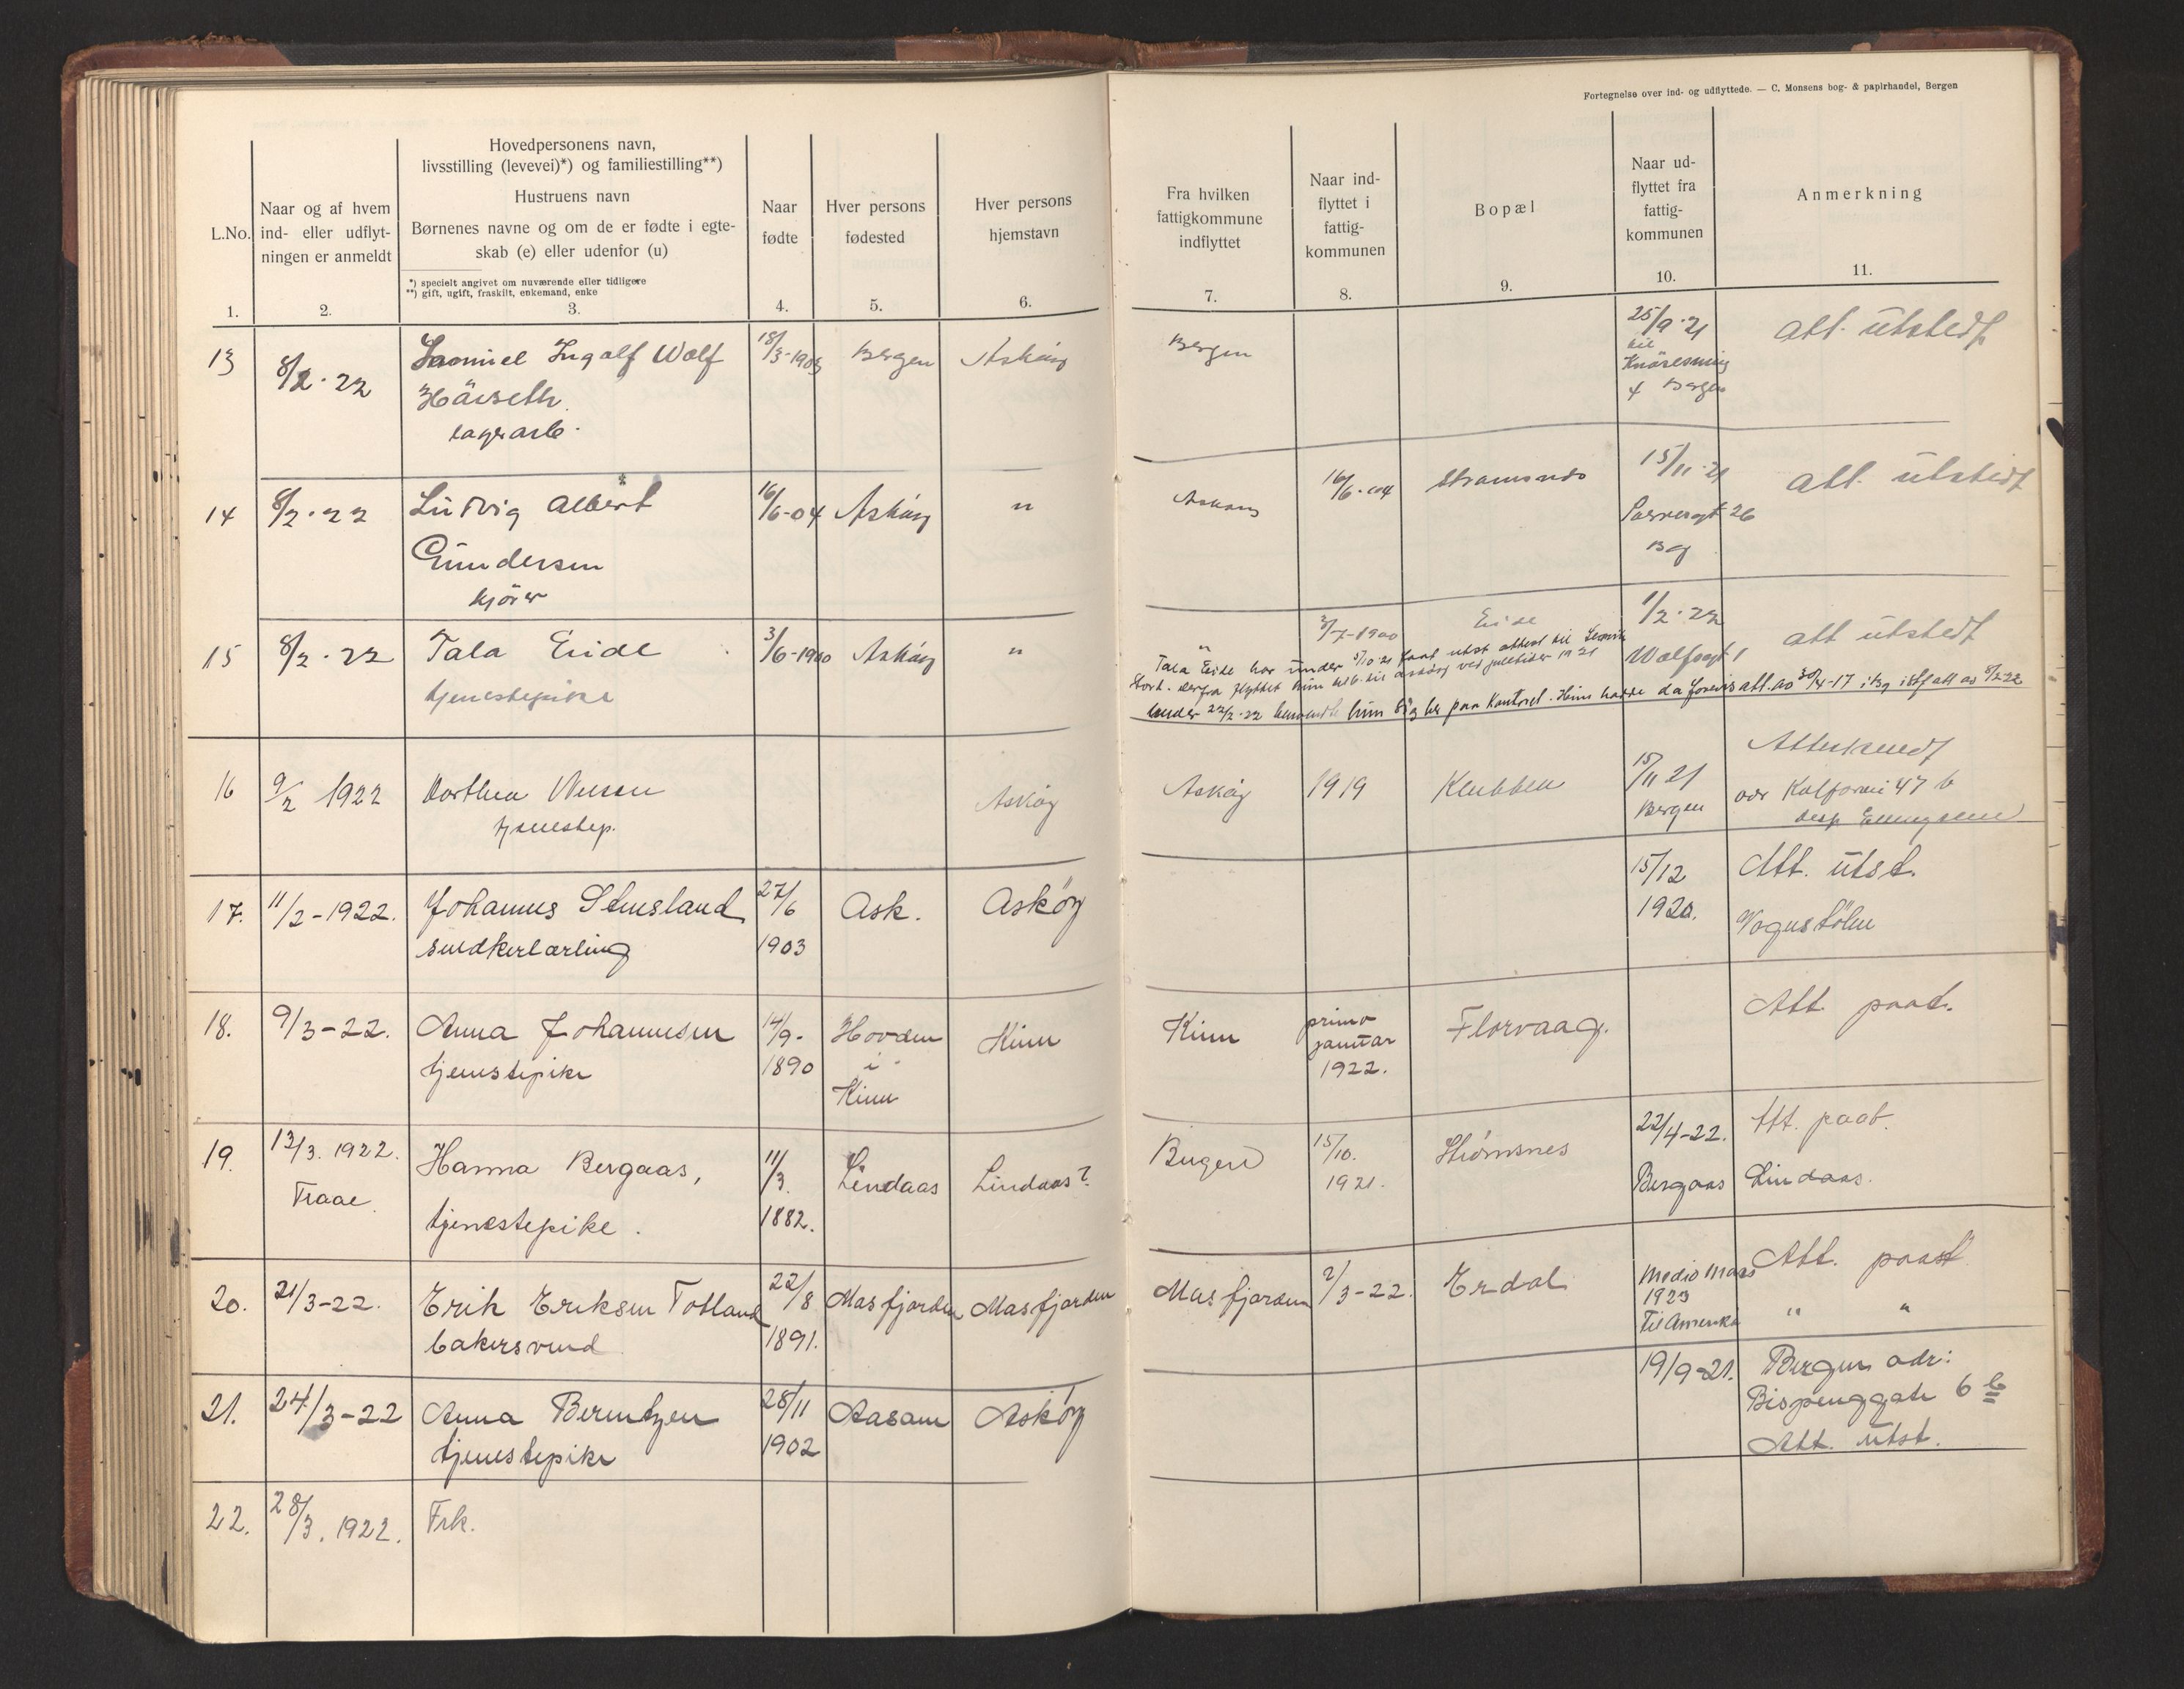 Fortegnelse over ind- og udflyttede. — C. Monsens bog- & papirhandel, Bergen
L.No.
1.
Naar og af hvem
ind- eller udflyt-
ningen er anmeldt
2.
Hovedpersonens navn,
livsstilling (levevei)*) og familiestilling**)
Hustruens navn
Børnenes navne og om de er fødte i egte-
skab (e) eller udenfor (u)
*) specielt angivet om nuværende eller tidligere
**) gift, ugift, fraskilt, enkemand, enke
3.
Naar
fødte
4.
Hver persons
fødested
5.
Hver persons
hjemstavn
6.
Fra hvilken
fattigkommune
indflyttet
7.
Naar ind-
flyttet i
fattig-
kommunen
8.
Bopæl
9.
Naar ud-
flyttet fra
fattig-
kommunen
10.
Anmerkning
11.
13
8/2·22
Ingolf Wolf
lagerarb.
18/3-1903
Bergen
Askøy
Bergen
25/9·21
til
Bergen
att. utstedt
14
8/2·22
Ludvig Albert
Gundersen
kjører
16/6-04
Askøy
"
Askøy
16/6·04
Strømsnes
15/11·21
26
Bg
att. utstedt
15
8/2·22
Tala Eide
tjenestepike
3/6-1900
Askøy
"
"
3/7-1900
Eide
1/2·22
att utstedt
Tala Eide har under 5/10 21 faat utst attest til
derfra flyttet hun til Askøy ved juletider 1921
Under 22/2·22 hun sig her paa Kontoret. Hun hadde da att. av 30/4-17 i Bg att av 8/2 22
16
9/2 1922
Dorthea
tjenestep.
Askøy
Askøy
1919
Klubben
15/11 21
Bergen
adr Kalfarvei 47 b
17.
11/2-1922.
Johannes Stensland
snedkerlærling
27/6
1903
Ask.
Askøy
15/12
1920.
Att. utst.
18.
9/3-22.
Anna Johannesen
tjenestepike
14/9-
1890
Hovden
i
Kinn
Kinn
Kinn
primo
januar
1922.
Florvaag.
Att. paat.
19.
13/3. 1922.
Traae.
Hanna Bergaas,
tjenestepike.
11/3.
1882.
Lindaas
Lindaas?
Bergen
15/10.
1921.
Strømsnes
22/4-22.
Bergaas
Att. paat.
Lindaas.
20.
21/3-22.
Erik Eriksen Totland
bakersvend
22/8
1891.
Masfjorden
Masfjorden
Masfjorden
2/3-22.
Erdal
Medio Mars
1923
Til Amerika
Att. paat
" "
21.
24/3-22
Anna Berntzen
tjenestepike
28/11
1902
Aasane
Askøy
19/9-21.
Bergen adr:
Bispenggate 6 b
Att. utst.
22.
28/3. 1922.
Frk.